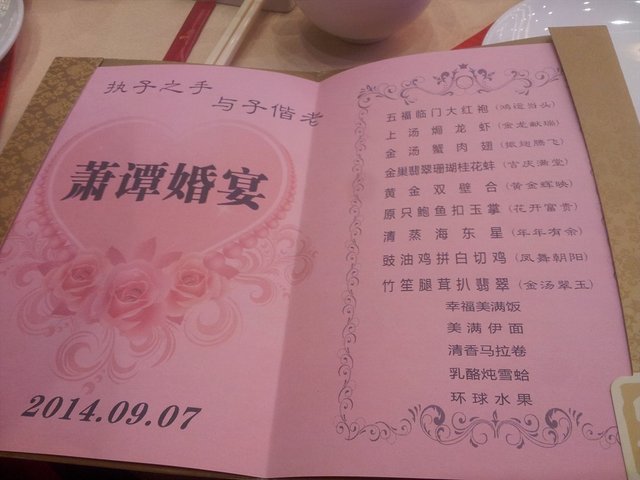 执子之手
与子偕老
萧谭婚宴
2014.09.07
五福临门大红袍（鸿运当头）
上汤焗龙虾（金龙献瑞）
金汤蟹肉翅（振翅腾飞）
金巢翡翠珊瑚桂花蚌（吉庆满堂）
黄金双壁合（黄金辉映）
原只鲍鱼扣玉掌（花开富贵）
清蒸海东星（年年有余）
豉油鸡拼白切鸡（凤舞朝阳）
竹笙腿茸扒翡翠（金汤翠玉）
幸福美满饭
美满伊面
清香马拉卷
乳酪炖雪蛤
环球水果